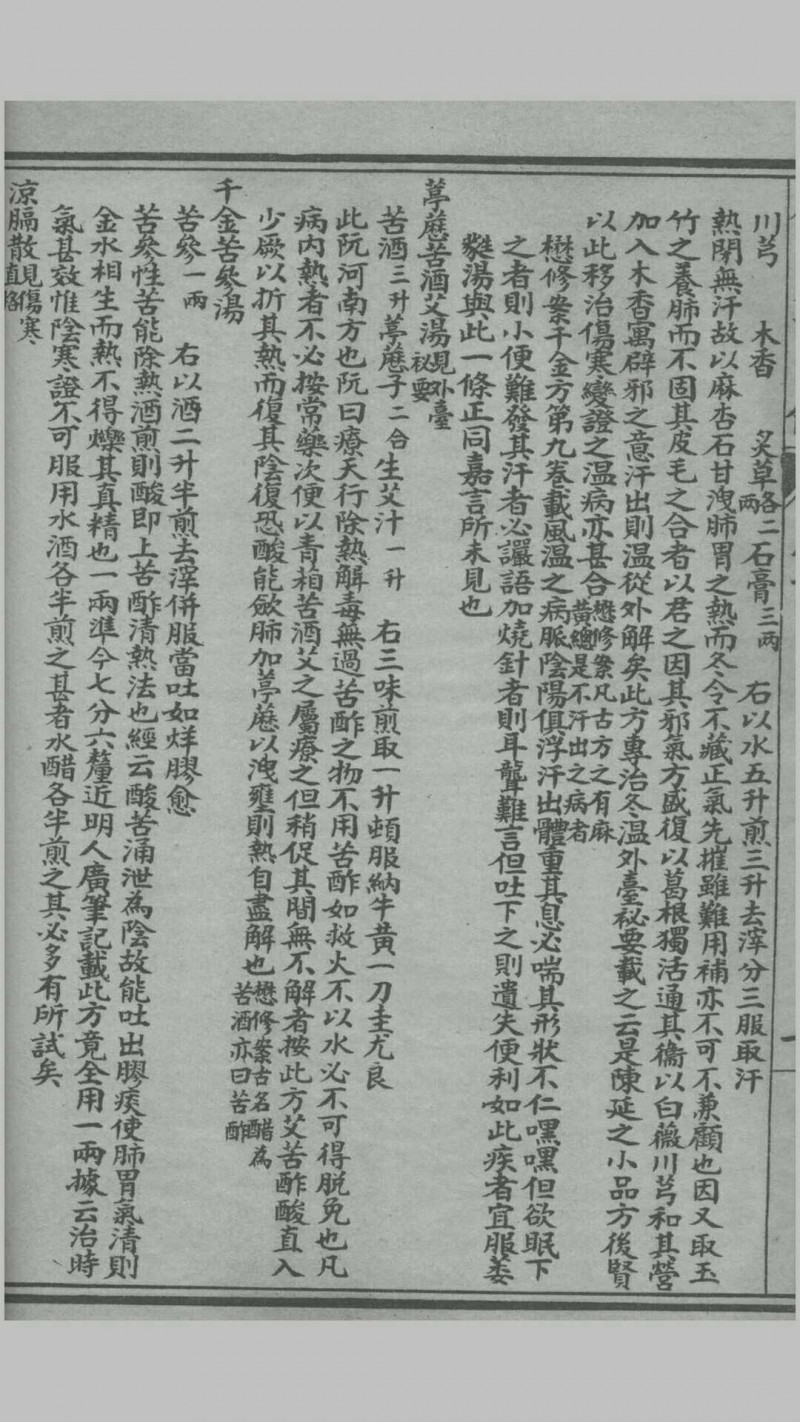 川芎　木香　炙草各二兩　石膏三兩　右以水五升煎三升去滓分三服取汗
熱閉無汗故以麻杏石甘洩肺胃之熱而冬令不藏正氣先摧雖難用補亦不可不兼顧也因又取玉
竹之養肺而不固其皮毛之合者以君之因其邪氣方盛復以葛根獨活通其衞以白薇川芎和其營
加入木香寓辟邪之意汗出則温從外解矣此方專治冬温外臺祕要載之云是陳延之小品方後賢
以此移治傷寒變證之温病亦甚合懋修案凡古方之有麻黃總是不汗出之病者
懋修案千金方第九卷載風温之病脈陰陽俱浮汗出體重其息必喘其形狀不仁嘿嘿但欲眠下
之者則小便難發其汗者必讝語加燒針者則耳聾難言但吐下之則遺失便利如此疾者宜服萎
蕤湯與此一條正同嘉言所未見也
葶藶苦酒艾湯見外臺祕要
苦酒三升　葶藶子二合　生艾汁一升　右三味煎取一升頓服納牛黃一刀圭尤良
此阮河南方也阮曰療天行除熱解毒無過苦酢之物不用苦酢如救火不以水必不可得脱免也凡
病内熱者不必按常藥次便以青葙苦酒艾之屬療之但稍促其間無不解者按此方艾苦酢酸直入
少厥以折其熱而復其陰復恐酸能斂肺加葶藶以洩壅則熱自盡解也懋修案古名醋為苦酒亦曰苦酢
千金苦參湯
苦參一兩　右以酒二升半煎去滓併服當吐如烊膠愈
苦參性苦能除熱酒煎則酸即上苦酢清熱法也經云酸苦涌泄為陰故能吐出膠痰使肺胃氣清則
金水相生而熱不得爍其真精也一兩準今七分六釐近明人廣筆記載此方竟全用一兩據云治時
氣甚效惟陰寒證不可服用水酒各半煎之甚者水醋各半煎之其必多有所試矣
涼膈散見傷寒直格